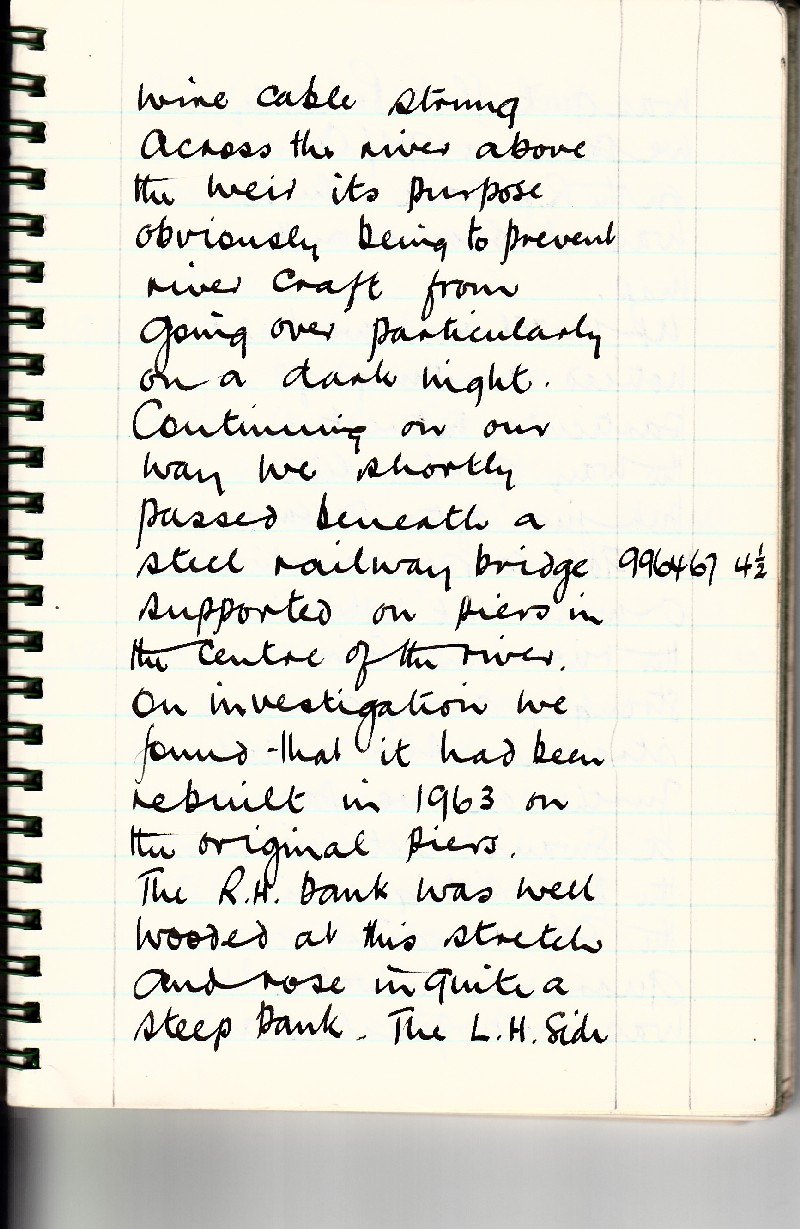 wire cable strung
Across the river above
the weir its purpose
obviously being to prevent
river craft from
going over particularly
on a dark night.
Continuing on our
way we shortly
passed beneath a
steel railway bridge 996467 4½
supported on piers in
the centre of the river.
On investigation we
found that it had been
rebuilt in 1963 on
the original piers.
The R.H. bank was well
wooded at this stretch
and rose in quite a
steep bank. The L.H. Side